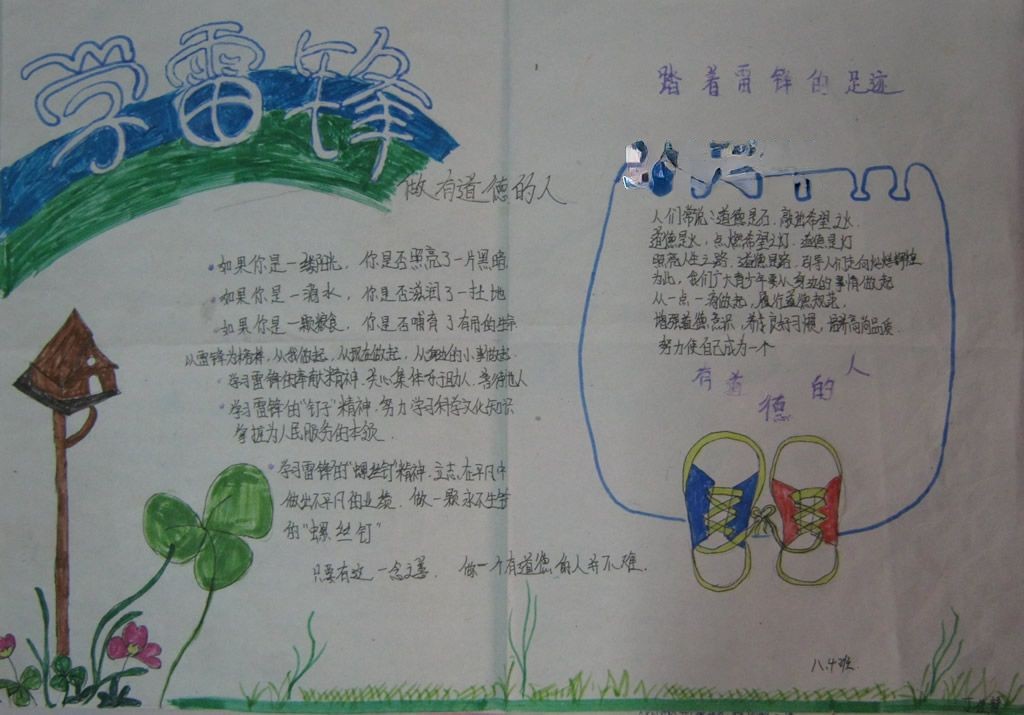 学雷锋
做有道德的人
如果你是一缕阳光，你是否照亮了一片黑暗
如果你是一滴水，你是否滋润了一土地
如果你是一颗粮食，你是否哺育了有用的生命
从雷锋为榜样，从我做起，从现在做起，从身边的小事做起.
学习雷锋的奉献精神.关心集体.乐于助人.善待他人
学习雷锋的"钉子"精神.努力学习科学文化知识
掌握为人民服务的本领.
学习雷锋的"螺丝钉"精神.立志在平凡中
做出不平凡的业绩.做一颗永不生锈
的"螺丝钉"
只要有这一念之善.做一个有道德的人并不难.
踏着雷锋的足迹
人们常说：道德是石.敲出希望之火.
道德是火，点燃希望之灯.道德是灯
照亮人生之路.道德是路.引导人们走向灿烂辉煌
为此，我们广大青少年要从身边的事情做起
从一点一滴做起，履行道德规范.
增强道德意识，养成良好习惯，培养高尚品质.
努力使自己成为一个
有道德的人
八.4班.